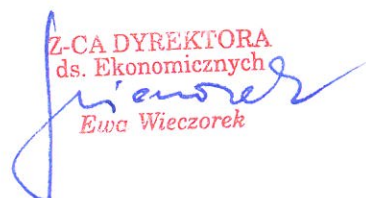 Z-CA DYREKTORA
ds. Ekonomicznych
Wieczorek
Ewa Wieczorek